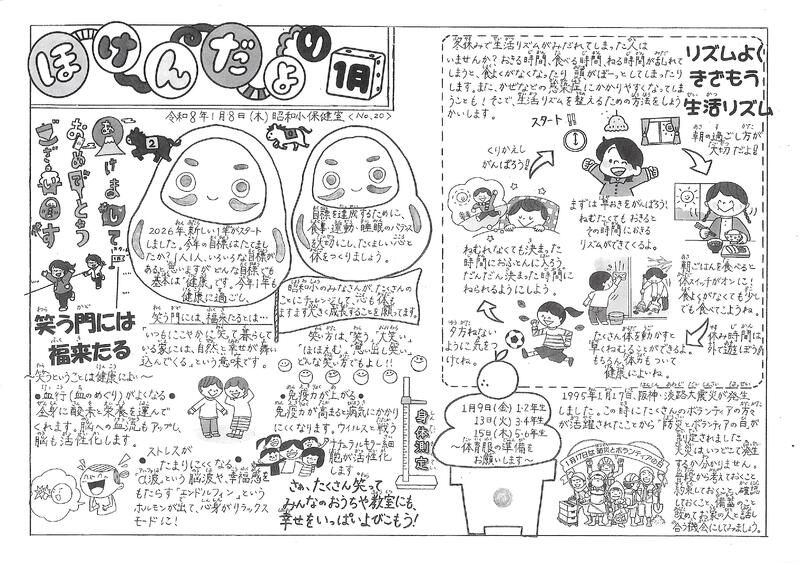 ほけんだより 1月
令和8年1月8日(木) 昭和小保健室 <No.20>
あけまして
おめでとう
ございます
2026年、新しい1年がスタート
しました。今年の目標はたてまし
たか?1人1人、いろいろな目標が
あると思いますが、どんな目標でも
基本は「健康」です。今年1年も
健康に過ごし、
目標を達成するために、
食事・運動・睡眠のバランス
を大切にし、たくましい心と
体をつくりましょう。
昭和小のみなさんが、たくさんの
ことにチャレンジして、心も体も
ますます大きく成長することを願ってます。
笑う門には
福来たる
~笑うということは健康によい~
笑う門には、福来たるとは…
「いつもにこやかに笑って暮らして
いる家には、自然と幸せが舞い
込んでくる」という意味です。
笑い方は、「笑う」「大笑い」
「ほほえむ」「思い出し笑い」
どんな笑い方でもよし!!
●血行(血のめぐり)がよくなる●
全身に酸素と栄養を運んで
くれます。脳への血流もアップし、
脳も活性化します。
ストレスが
たまりにくくなる
「α波」という脳波や、幸福感を
もたらす「エンドルフィン」という
ホルモンが出て、心身がリラックス
モードに!
●免疫力が上がる●
免疫力が高まると病気にかかり
にくくなります。ウイルスと戦う
ナチュラルキラー細
胞が活性化
します
さぁ、たくさん笑って
みんなのおうちや教室にも、
幸せをいっぱいよびこもう!
身体測定
1月9日(金) 1・2年生
13日(火) 3・4年生
15日(木) 5・6年生
~体育服の準備を
お願いします~
リズムよく
きざもう
生活リズム
冬休みで生活リズムがみだれてしまった人は
いませんか?おきる時間、食べる時間、ねる時間が乱れて
しまうと、食よくがなくなったり、頭がぼーっとしてしまったり
します。また、かぜなどの感染症にかかりやすくなってしま
うことも!そこで、生活リズムを整えるための方法をしょう
かいします。
スタート!!
まずは早おきをがんばろう!
ねむたくてもおきると
その時間におきる
リズムができてくるよ。
朝の過ごし方が
大切だよ!!
朝ごはんを食べると
体スイッチがオンに!
食よくがなくても少し
でも食べてこようね。
休み時間は、
外で遊ぼう!
たくさん体を動かすと
早くねむることができるよ。
もちろん体力もついて
健康によいね。
夕方ねない
ように気をつ
けてね。
ねむれなくても決まった
時間におふとんに入ろう。
だんだん決まった時間に
ねられるようにしよう。
くりかえし
がんばろう!!
1995年1月17日、阪神・淡路大震災が発生
しました。この時にたくさんのボランティアの方々
が活躍されたことから「防災とボランティアの日」が
制定されました。
災害はいつどこで発生
するか分かりません。
普段から考えておくこと、
約束しておくこと、確認
しておくこと、備蓄のこと
改めてお家の人と話し
合う機会にしてみましょう。
1月17日は防災とボランティアの日